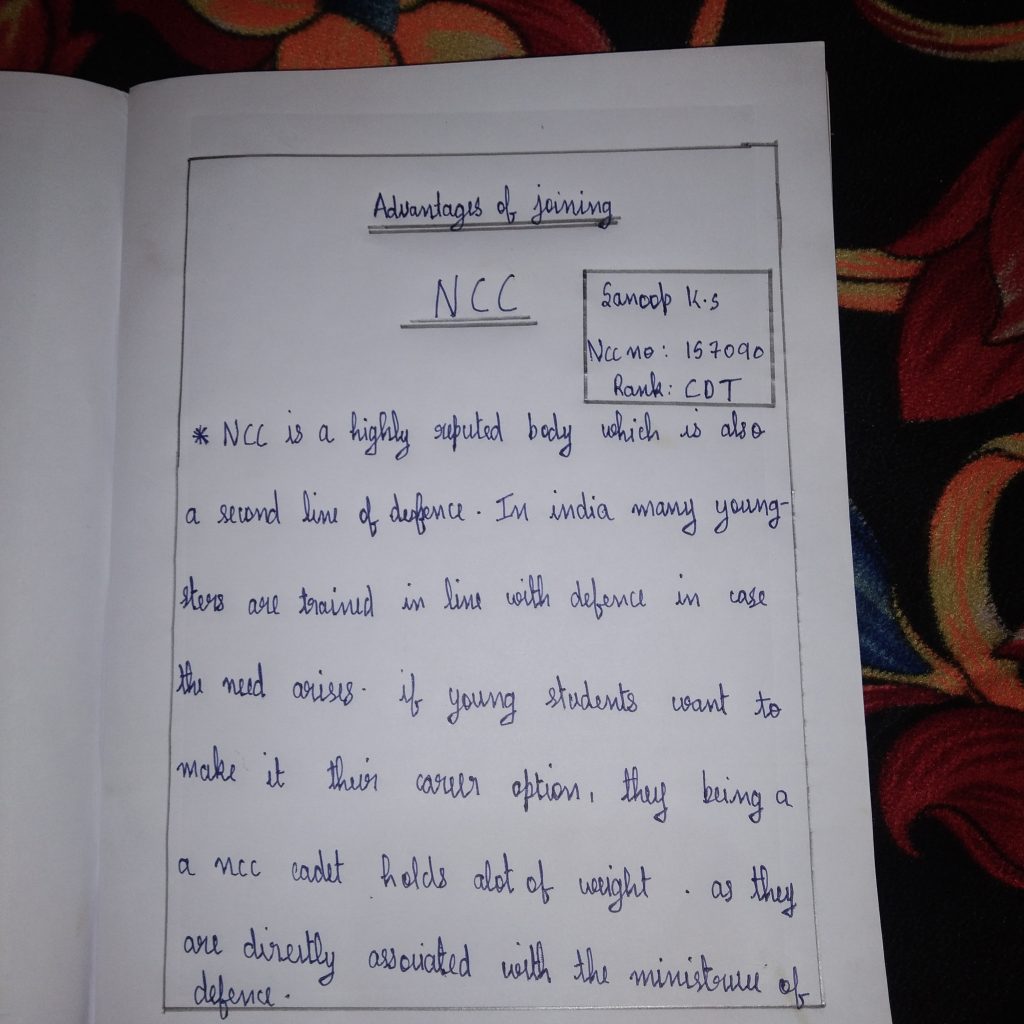 Advantages of joining
NCC
Sanoop K.S
Ncc no: 157090
Rank: CDT
* NCC is a highly reputed body which is also
a second line of defence. In india many young-
sters are trained in line with defence in case
the need arises. if young students want to
make it their career option, they being a
a ncc cadet holds alot of weight. as they
are directly associated with the of
defence.